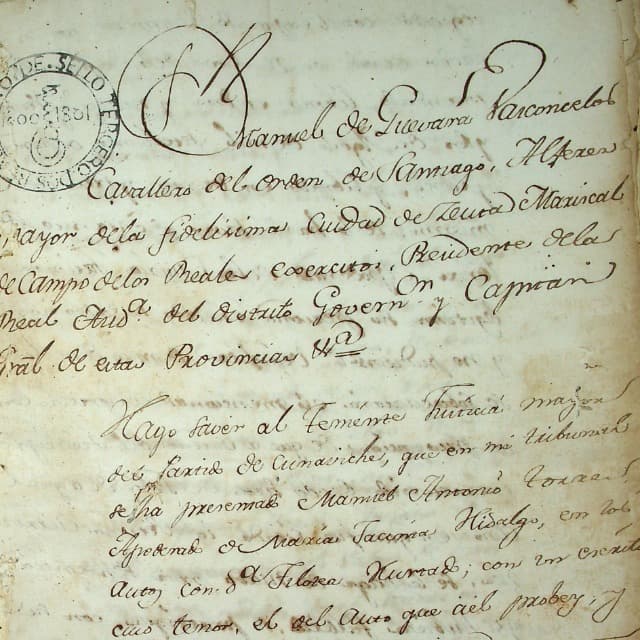 SELLO TERCERO DOS R
1800 1801
Dn
Manuel de Guevara Vasconcelos
Cavallero del orden de Santiago, Alferez
mayor de la fidelisima Ciudad de Zeuta Mariscal
de Campo de los Reales exercitos, Presidente de la
Real Auda del distrito Governor y Capitan
Gral de estas Provincias &a
Hago saver al Teniente Justicia mayor
del Partido de Cunaviche, que en mi tribunal
se ha presentado Manuel Antonio torres
Apoderado de Maria Jacinta Hidalgo, en los
Autos con Da Filotea Hurtado; con un escrito
cuio tenor, el del Auto que a el probey, y